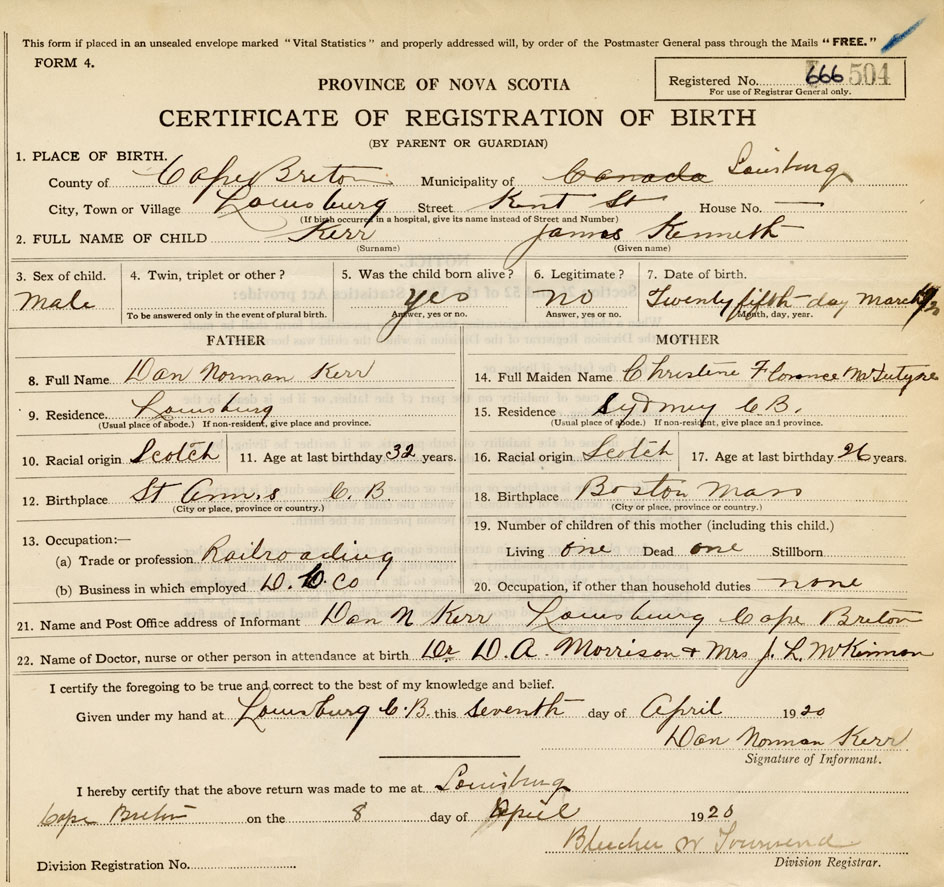 This form if placed in an unsealed envelope marked "Vital Statistics" and properly addressed will, by order of the Postmaster General pass through the Mails "FREE."
FORM 4.
Registered No. 666 504
For use of Registrar General only.
PROVINCE OF NOVA SCOTIA
CERTIFICATE OF REGISTRATION OF BIRTH
(BY PARENT OR GUARDIAN)
1. PLACE OF BIRTH.
County of Cape Breton Municipality of Canada Louisburg
City, Town or Village Louisburg Street Kent St House No. —
(If birth occurred in a hospital, give its name instead of Street and Number)
2. FULL NAME OF CHILD Kerr James Kenneth
(Surname) (Given name)
3. Sex of child. 4. Twin, triplet or other? 5. Was the child born alive? 6. Legitimate? 7. Date of birth.
Male yes no Twenty fifth day March
To be answered only in the event of plural birth. Answer, yes or no. Answer, yes or no. Month, day, year.
FATHER MOTHER
8. Full Name Dan Norman Kerr
14. Full Maiden Name Christene Florence McIntyre
9. Residence. Louisburg
15. Residence Sydney C.B.
(Usual place of abode.) If non-resident, give place and province. (Usual place of abode.) If non-resident, give place and province.
10. Racial origin Scotch 11. Age at last birthday 32 years.
16. Racial origin Scotch 17. Age at last birthday 26 years.
12. Birthplace St Anns C. B.
(City or place, province or country.)
18. Birthplace Boston Mass
(City or place, province or country.)
13. Occupation:—
(a) Trade or profession Railroading
(b) Business in which employed D. C. Co
19. Number of children of this mother (including this child.)
Living one Dead one Stillborn
20. Occupation, if other than household duties none
21. Name and Post Office address of Informant Dan N Kerr Louisburg Cape Breton
22. Name of Doctor, nurse or other person in attendance at birth Dr D. A. Morrison + Mrs J. L. McKinnon
I certify the foregoing to be true and correct to the best of my knowledge and belief.
Given under my hand at Louisburg C.B. this seventh day of April 1920
Dan Norman Kerr
Signature of Informant.
I hereby certify that the above return was made to me at Louisburg
Cape Breton on the 8 day of April 1920
Bleecher W Townsend
Division Registrar.
Division Registration No.